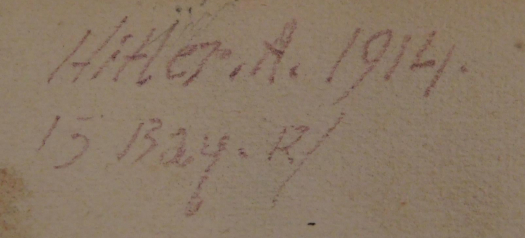 Hitler. A. 1914.
15 Bay. R/